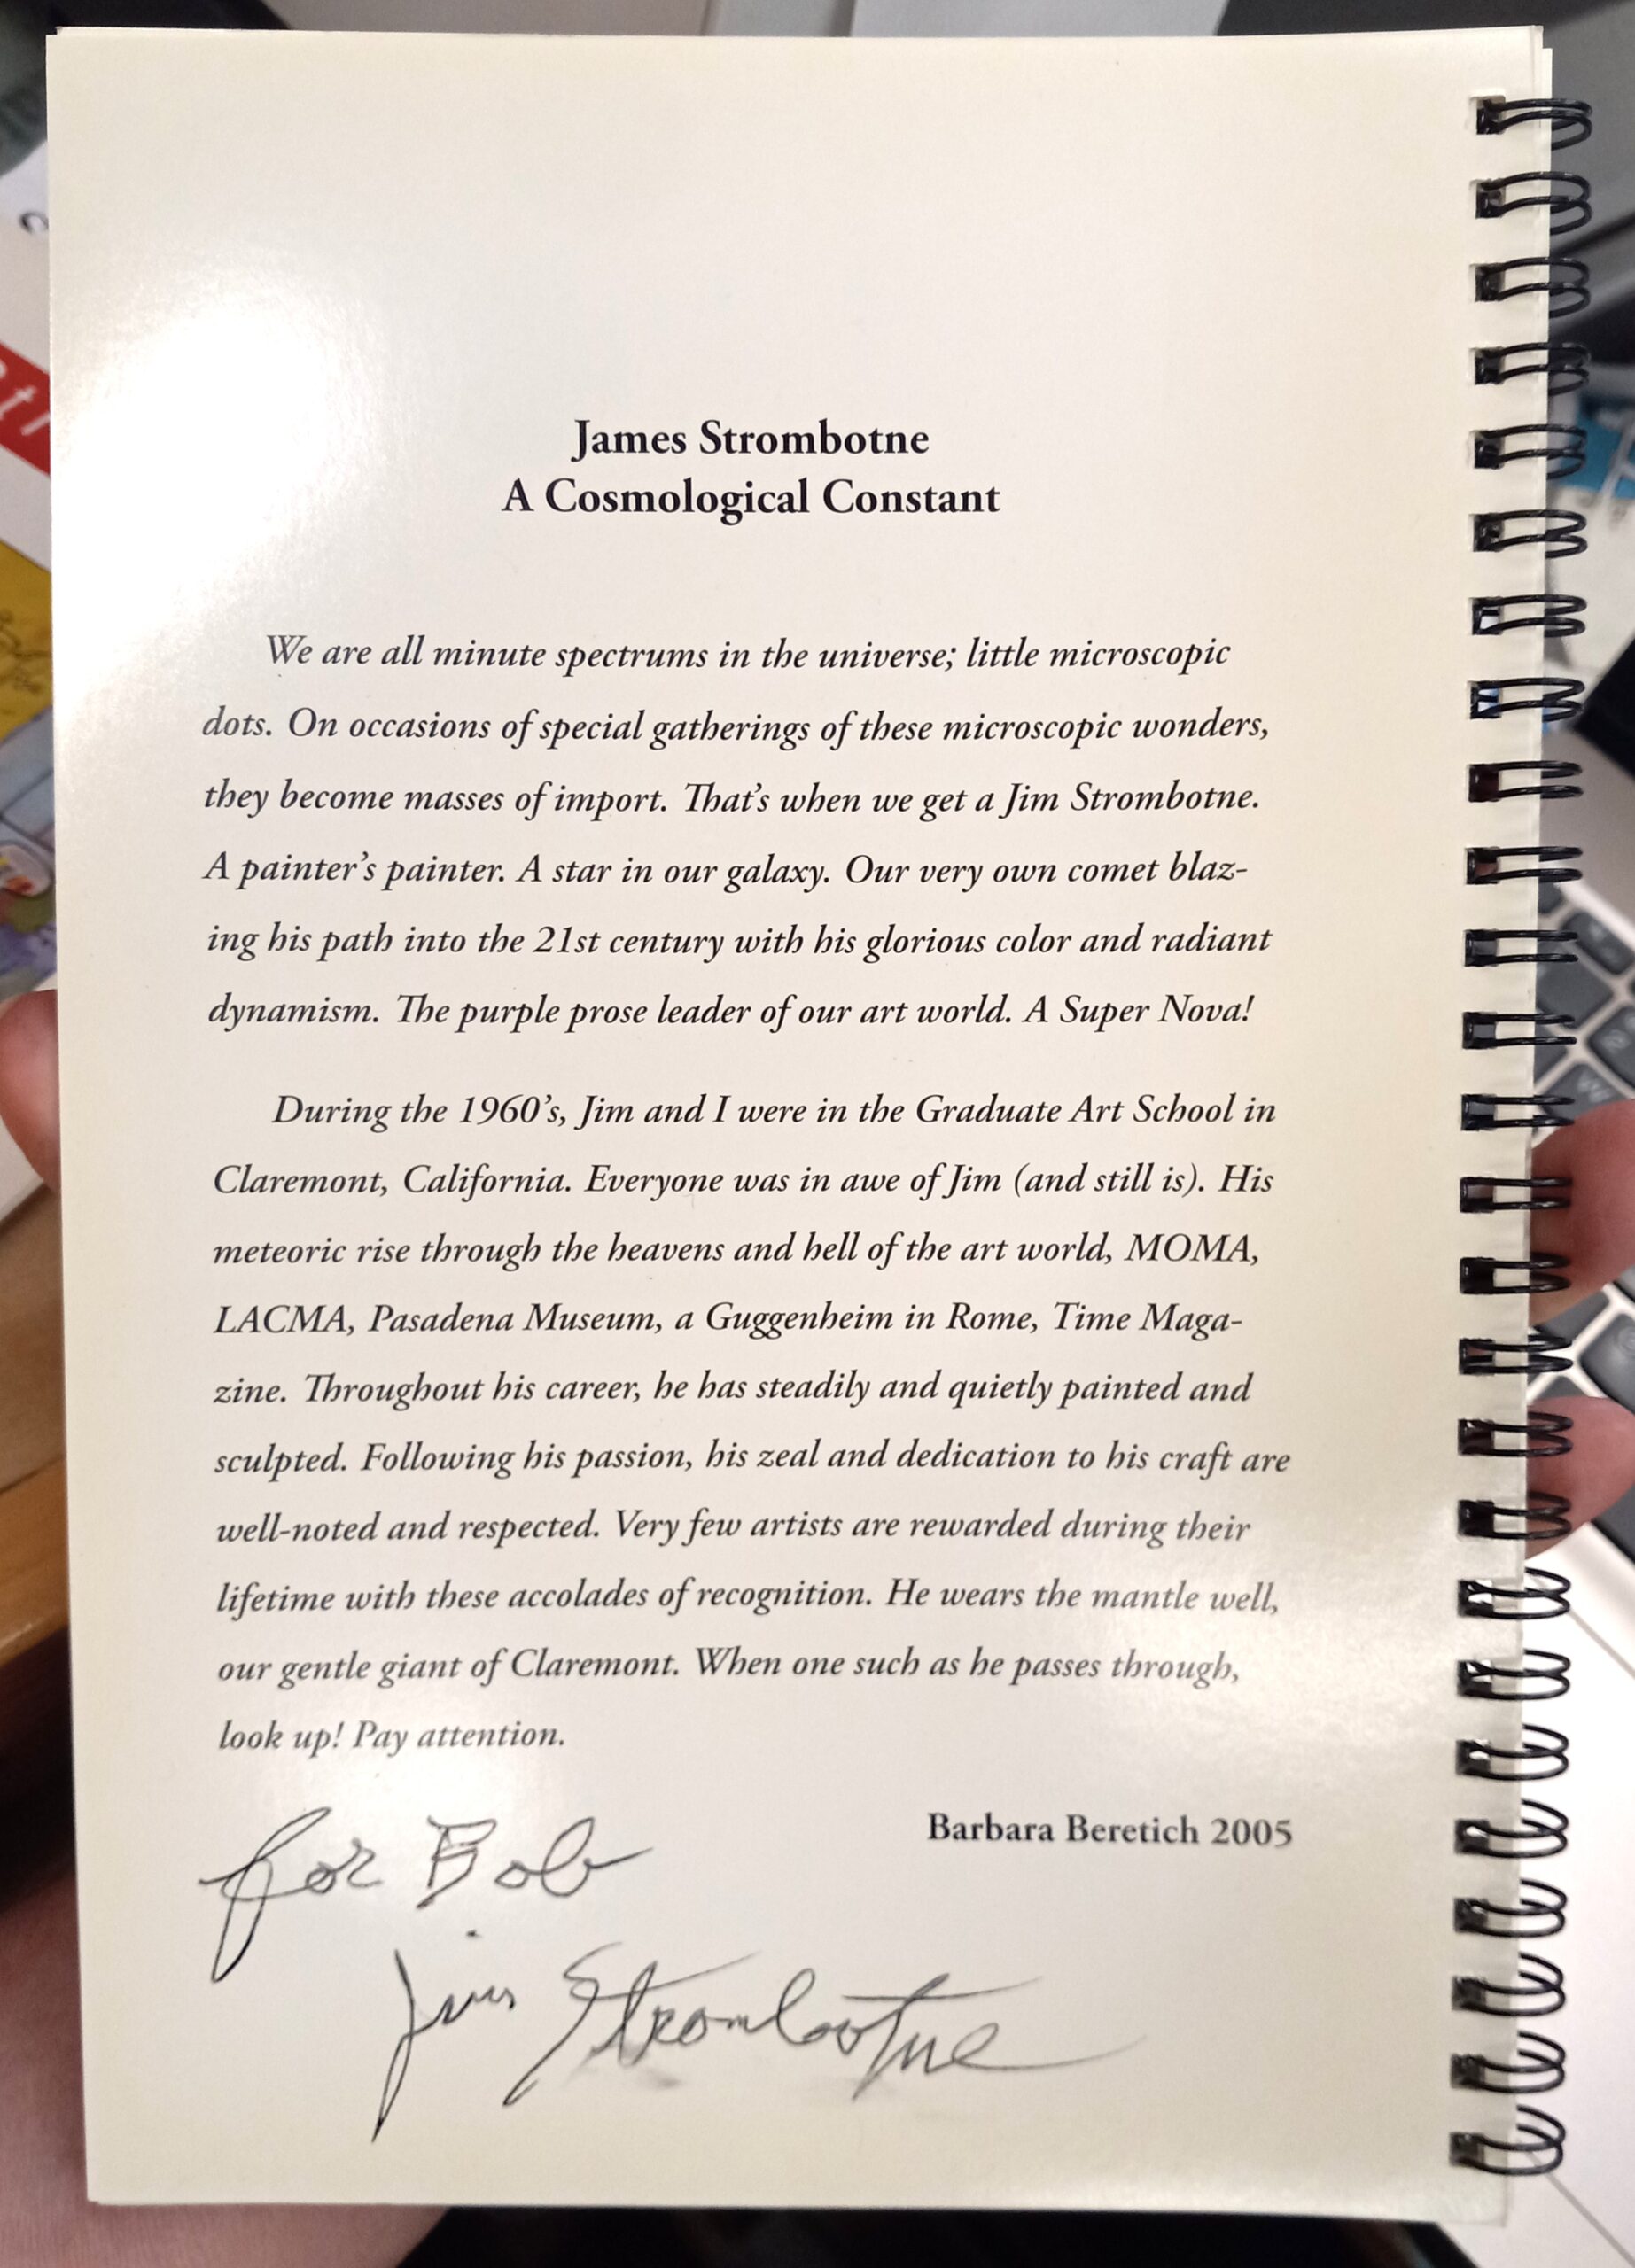 James Strombotne
A Cosmological Constant
We are all minute spectrums in the universe; little microscopic
dots. On occasions of special gatherings of these microscopic wonders,
they become masses of import. That's when we get a Jim Strombotne.
A painter's painter. A star in our galaxy. Our very own comet blaz-
ing his path into the 21st century with his glorious color and radiant
dynamism. The purple prose leader of our art world. A Super Nova!
During the 1960's, Jim and I were in the Graduate Art School in
Claremont, California. Everyone was in awe of Jim (and still is). His
meteoric rise through the heavens and hell of the art world, MOMA,
LACMA, Pasadena Museum, a Guggenheim in Rome, Time Maga-
zine. Throughout his career, he has steadily and quietly painted and
sculpted. Following his passion, his zeal and dedication to his craft are
well-noted and respected. Very few artists are rewarded during their
lifetime with these accolades of recognition. He wears the mantle well,
our gentle giant of Claremont. When one such as he passes through,
look up! Pay attention.
Barbara Beretich 2005
for Bob
Jim Strombotne